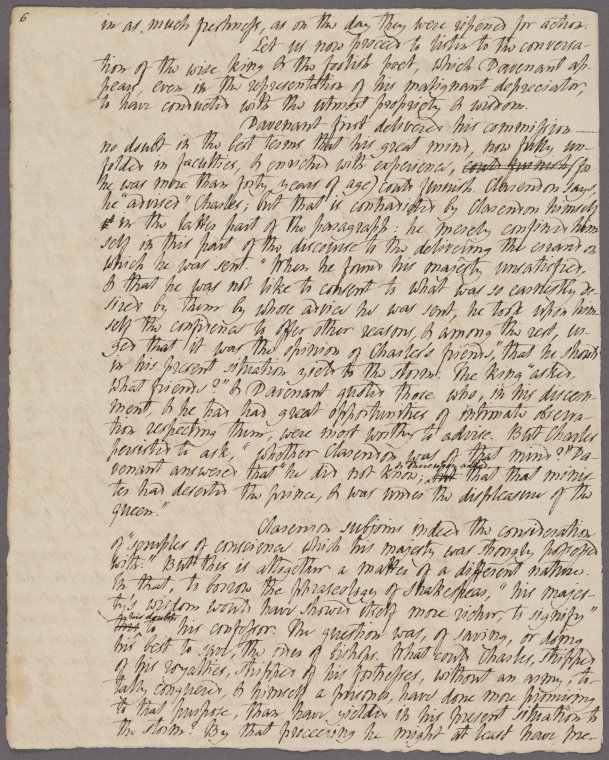 6
in as much freshness, as on the day they were ripened for action.
Let us now proceed to listen to the conversa-
tion of the wise king & the foolish poet, which Davenant ap-
pears, even in the representation of his malignant depreciator,
to have conducted with the utmost propriety & wisdom.
Davenant first delivered his commission—
no doubt in the best terms that his great mind, now fully un-
folded in faculties, & enriched with experience, could furnish (for
he was more than forty years of age) could furnish. Clarendon says,
he "advised" Charles; but that is contradicted by Clarendon himself
in the latter part of the paragraph: he merely confined him
self in this part of the discourse to the delivering the errand on
which he was sent. "When he found his majesty unsatisfied,
& that he was not like to consent to what was so earnestly de-
sired by them by whose advice he was sent, he took upon him-
self the confidence to offer other reasons, & among the rest, ur-
ged that it was the opinion of Charles's friends," that he should
in his present situation yield to the storm. The king "asked,
what friends?" & Davenant quoted those who, in his discern-
ment, & he had had great opportunities of intimate observa-
tion respecting them, were most worthy to advise. But Charles
persisted to ask, "whether Clarendon was of that mind?" Da-
venant answered that "he did not know; & thereupon added that that minis-
ter had deserted the prince, & was under the displeasure of the
queen."
Clarendon subjoins indeed the consideration
of "scruples of conscience which his majesty was strongly possessed
with." But this is altogether a matter of a different nature.
In that, to borrow the phraseology of Shakespear, "his majes-
ty's wisdom would have showed itself more richer, to signify"
his doubts to his confessor. The question was, of saving, or doing
his best to save, the order of bishops. What could Charles, stripped
of his royalties, stripped of his fortresses, without an army, to-
tally conquered, & himself a prisoner, have done more promising
to that purpose, than have yielded in his present situation to
the storm? By that proceeding he might at least have pre-